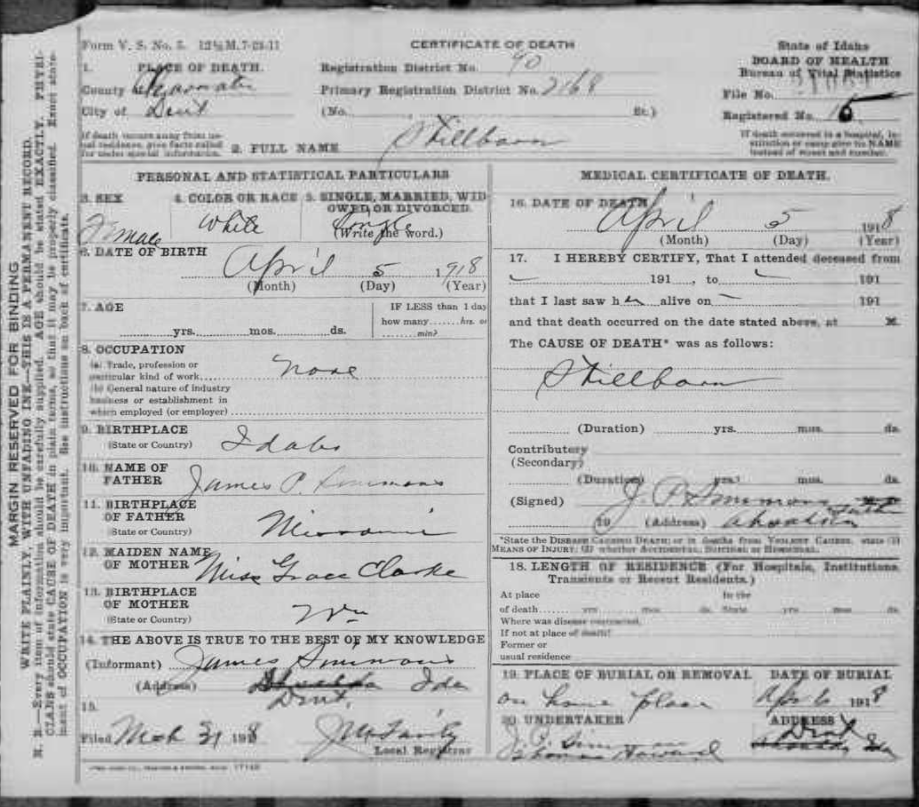 Form V. S. No. 5. 12½ M. 7-21-11
CERTIFICATE OF DEATH
State of Idaho
BOARD OF HEALTH
Bureau of Vital Statistics
File No.
Registered No. 15
1. PLACE OF DEATH.
County
City of Dent
Registration District No. 90
Primary Registration District No. 2168
(No. St.)
If death occurs away from usual residence, give facts called for under special information.
If death occurred in a hospital, institution or camp give its NAME instead of street and number.
2. FULL NAME Stillborn
PERSONAL AND STATISTICAL PARTICULARS
3. SEX
Female
4. COLOR OR RACE
White
5. SINGLE, MARRIED, WIDOWED OR DIVORCED.
(Write the word.)
Single
6. DATE OF BIRTH
April 5 1918
(Month) (Day) (Year)
7. AGE
yrs. mos. ds.
IF LESS than 1 day
how many hrs. or
min?
8. OCCUPATION
(a) Trade, profession or
particular kind of work None
(b) General nature of industry
business or establishment in
which employed (or employer)
9. BIRTHPLACE
(State or Country) Idaho
10. NAME OF
FATHER James P. Simmons
11. BIRTHPLACE
OF FATHER
(State or Country) Missouri
12. MAIDEN NAME
OF MOTHER Miss Grace Clarke
13. BIRTHPLACE
OF MOTHER
(State or Country)
14. THE ABOVE IS TRUE TO THE BEST OF MY KNOWLEDGE
(Informant) James Simmons
(Address) Ida
Dent,
15.
Filed Mch 31 1918
Local Registrar
MEDICAL CERTIFICATE OF DEATH.
16. DATE OF DEATH
April 5 1918
(Month) (Day) (Year)
17. I HEREBY CERTIFY, That I attended deceased from
191 , to 191
that I last saw her alive on 191
and that death occurred on the date stated above, at M.
The CAUSE OF DEATH* was as follows:
Stillborn
(Duration) yrs. mos. ds.
Contributory
(Secondary)
(Duration) yrs. mos. ds.
(Signed) J. P. Simmons
19 (Address)
*State the DISEASE CAUSING DEATH; or in deaths from VIOLENT CAUSES, state (1) MEANS OF INJURY; (2) whether ACCIDENTAL, SUICIDAL or HOMICIDAL.
18. LENGTH OF RESIDENCE (For Hospitals, Institutions, Transients or Recent Residents.)
At place In the
of death yrs mos. ds. State yrs mos. ds.
Where was disease contracted,
If not at place of death?
Former or
usual residence
19. PLACE OF BURIAL OR REMOVAL
on home place
DATE OF BURIAL
Apr 6 1918
20. UNDERTAKER
Thomas Howard
ADDRESS
Dent
Ida
MARGIN RESERVED FOR BINDING
WRITE PLAINLY, WITH UNFADING INK—THIS IS A PERMANENT RECORD.
N. B.—Every item of information should be carefully supplied. AGE should be stated EXACTLY. PHYSICIANS should state CAUSE OF DEATH in plain terms, so that it may be properly classified. Exact statement of OCCUPATION is very important. See instructions on back of certificate.